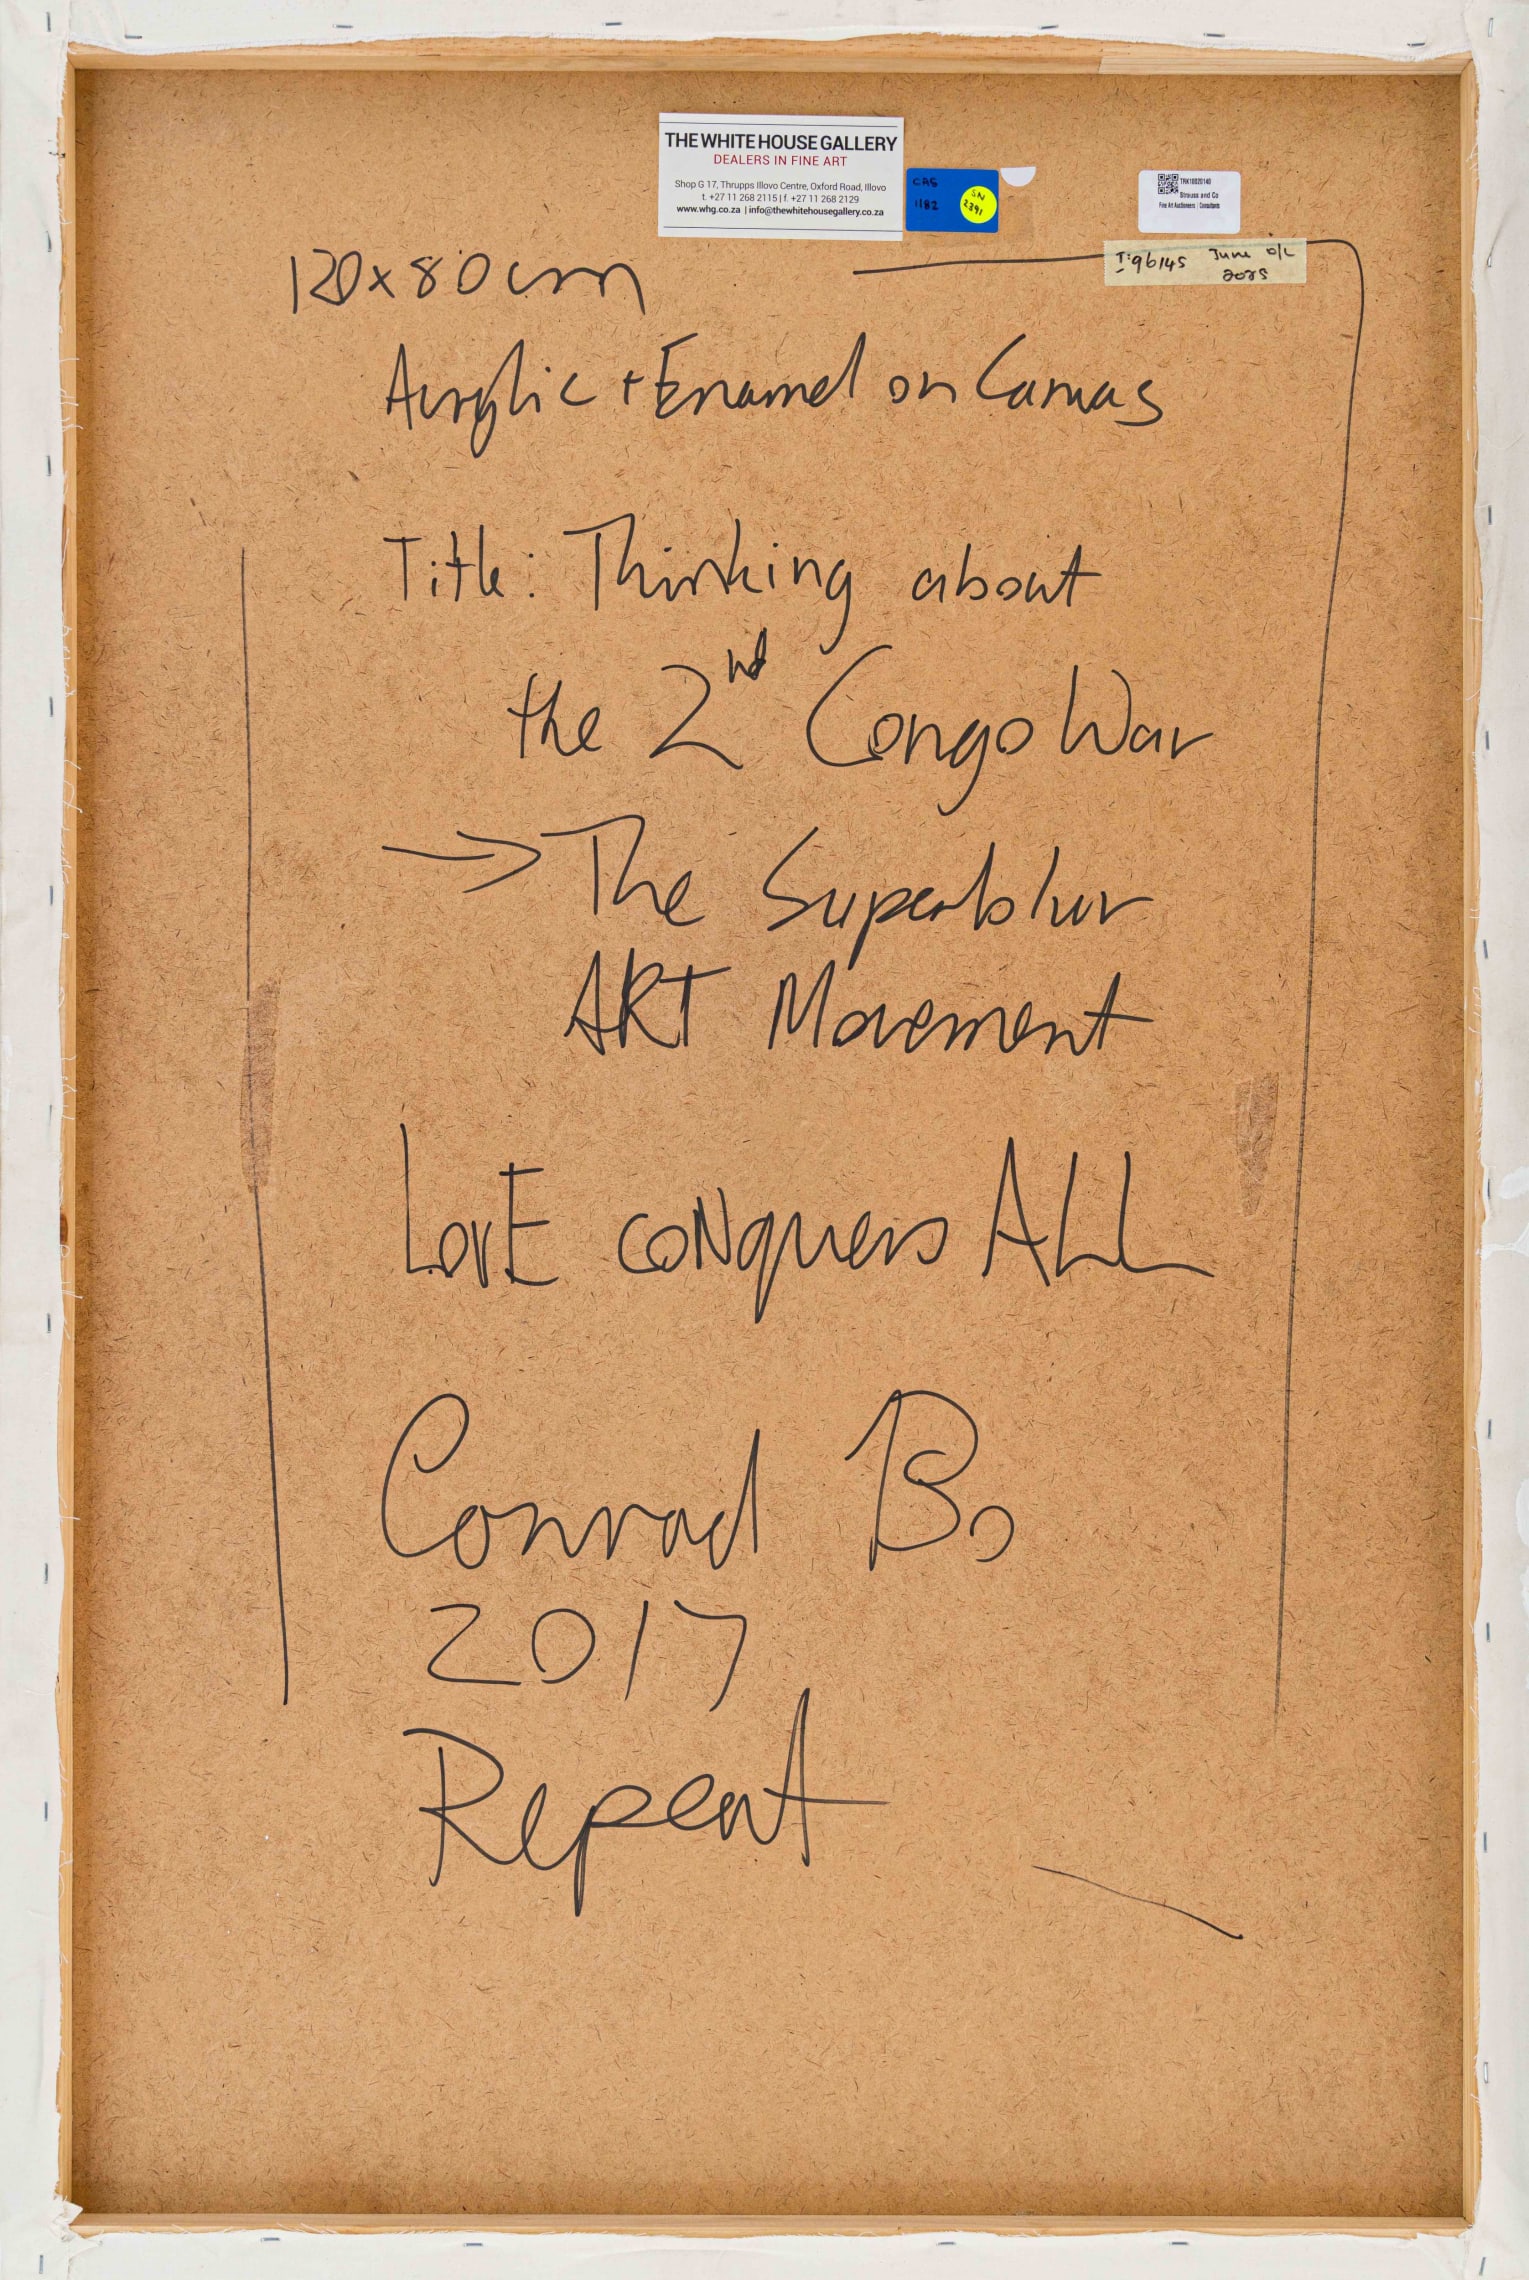 THE WHITE HOUSE GALLERY
DEALERS IN FINE ART
Shop G 17, Thrupps Illovo Centre, Oxford Road, Illovo
t. +27 11 268 2115 | f. +27 11 268 2129
www.whg.co.za | info@thewhitehousegallery.co.za
CAS
1182
SN
2391
TRK18020140
Strauss and Co
Fine Art Auctioneers | Consultants
I:96145 June o/L
2025
120x80cm
Acrylic + Enamel on Canvas
Title: Thinking about
the 2nd Congo War
→ The Superblur
ART Movement
LovE coNquers ALL
Conrad Bo
2017
Repeat